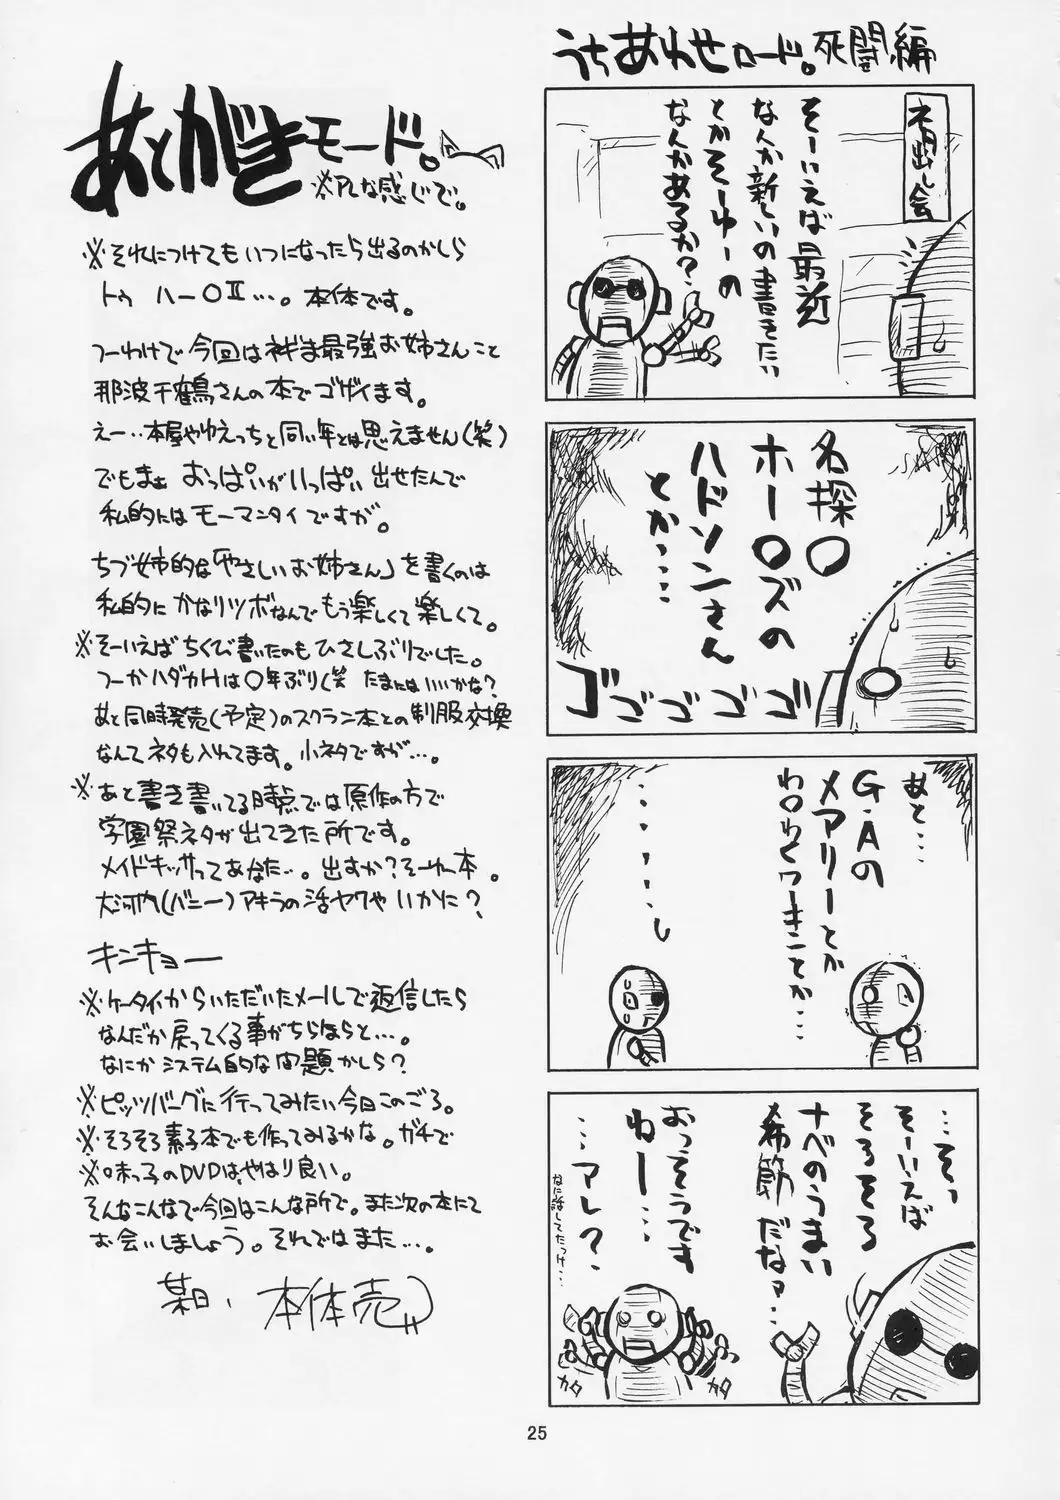 うちあわせロード。死闘編
ネ申出し会
そーいえば最近
なんか新しいの書きたい
とかそーゆーの
なんかあるか?
名探〇
ホー〇ズの
ハドソンさん
とか・・・・
ゴゴゴゴゴ
あと・・・
G・Aの
メアリーとか
わ〇わくワーキンとか・・・
・・・そっ
そーいえば
そろそろ
ナベのうまい
季節だなァ・・・
おっそうです
ねー・・・
・・・アレ?
なに話してたっけ・・・
カタ
カタ
あとがきモード。
※アレな感じで。
※それにつけてもいつになったら出るのかしら
トゥ ハー〇Ⅱ・・・。本体です。
つーわけで今回はネギま最強お姉さんこと
那波千鶴さんの本でゴザイます。
えー・・本屋やゆえっちと同い年とは思えません(笑)
でもまぁ おっぱいがいっぱい出せたんで
私的にはモーマンタイですが。
ちづ姉的な「やさしいお姉さん」を書くのは
私的にかなりツボなんでもう楽しくて楽しくて。
※そーいえばちくび書いたのもひさしぶりでした。
つーかハダカHは〇年ぶり(笑 たまにはいいかな?
あと同時発売(予定)のスクラン本との制服交換
なんてネタも入れてます。小ネタですが・・・。
※あと書き書いてる時点では原作の方で
学園祭ネタが出てきた所です。
メイドキッサってあなた・・・。出すか?そーゆー本。
大河内(バニー)アキラの活ヤクやいかに?
キンキョー
※ケータイからいただいたメールで返信したら
なんだか戻ってくる事がちらほらと・・・。
なにかシステム的な問題かしら?
※ピッツバーグに行ってみたい今日このごろ。
※そろそろ素子本でも作ってみるかな。ガチで
※味っ子のDVDは、やはり良い。
そんなこんなで今回はこんな所で。また次の本にて
お会いしましょう。それではまた・・・。
某日、本体売
25